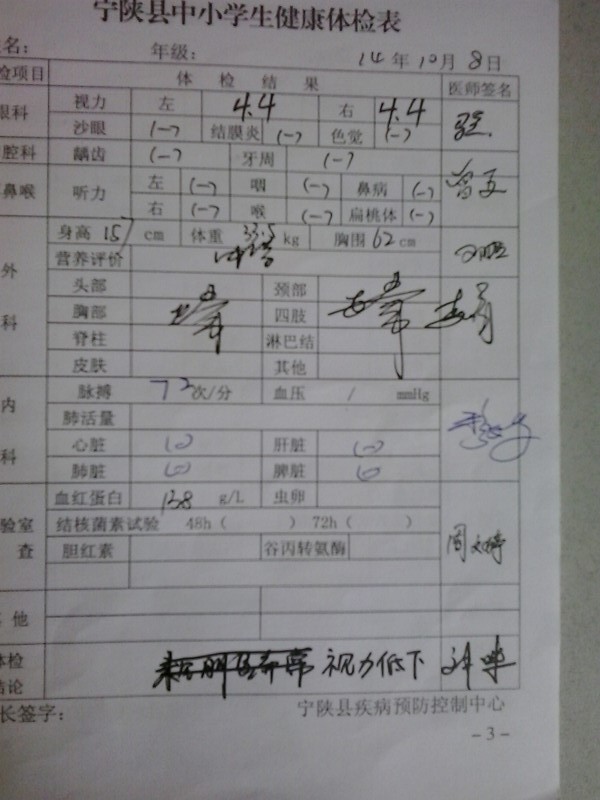 宁陕县中小学生健康体检表
名: 年级: 14年10月8日
检项目 体检结果 医师签名
眼科 视力 左 4.4 右 4.4
沙眼 (-) 结膜炎 (-) 色觉 (-)
腔科 龋齿 (-) 牙周 (-)
鼻喉 听力 左 (-) 咽 (-) 鼻病 (-)
右 (-) 喉 (-) 扁桃体 (-)
外科 身高 157 cm 体重 33.5 kg 胸围 62 cm
营养评价
头部 颈部
胸部 四肢
脊柱 淋巴结
皮肤 其他
内科 脉搏 72 次/分 血压 / mmHg
肺活量
心脏 肝脏
肺脏 脾脏
验室 血红蛋白 128 g/L 虫卵
查 结核菌素试验 48h( ) 72h( )
胆红素 谷丙转氨酶
周文婷
其他
体检结论 视力低下
长签字: 宁陕县疾病预防控制中心
-3-